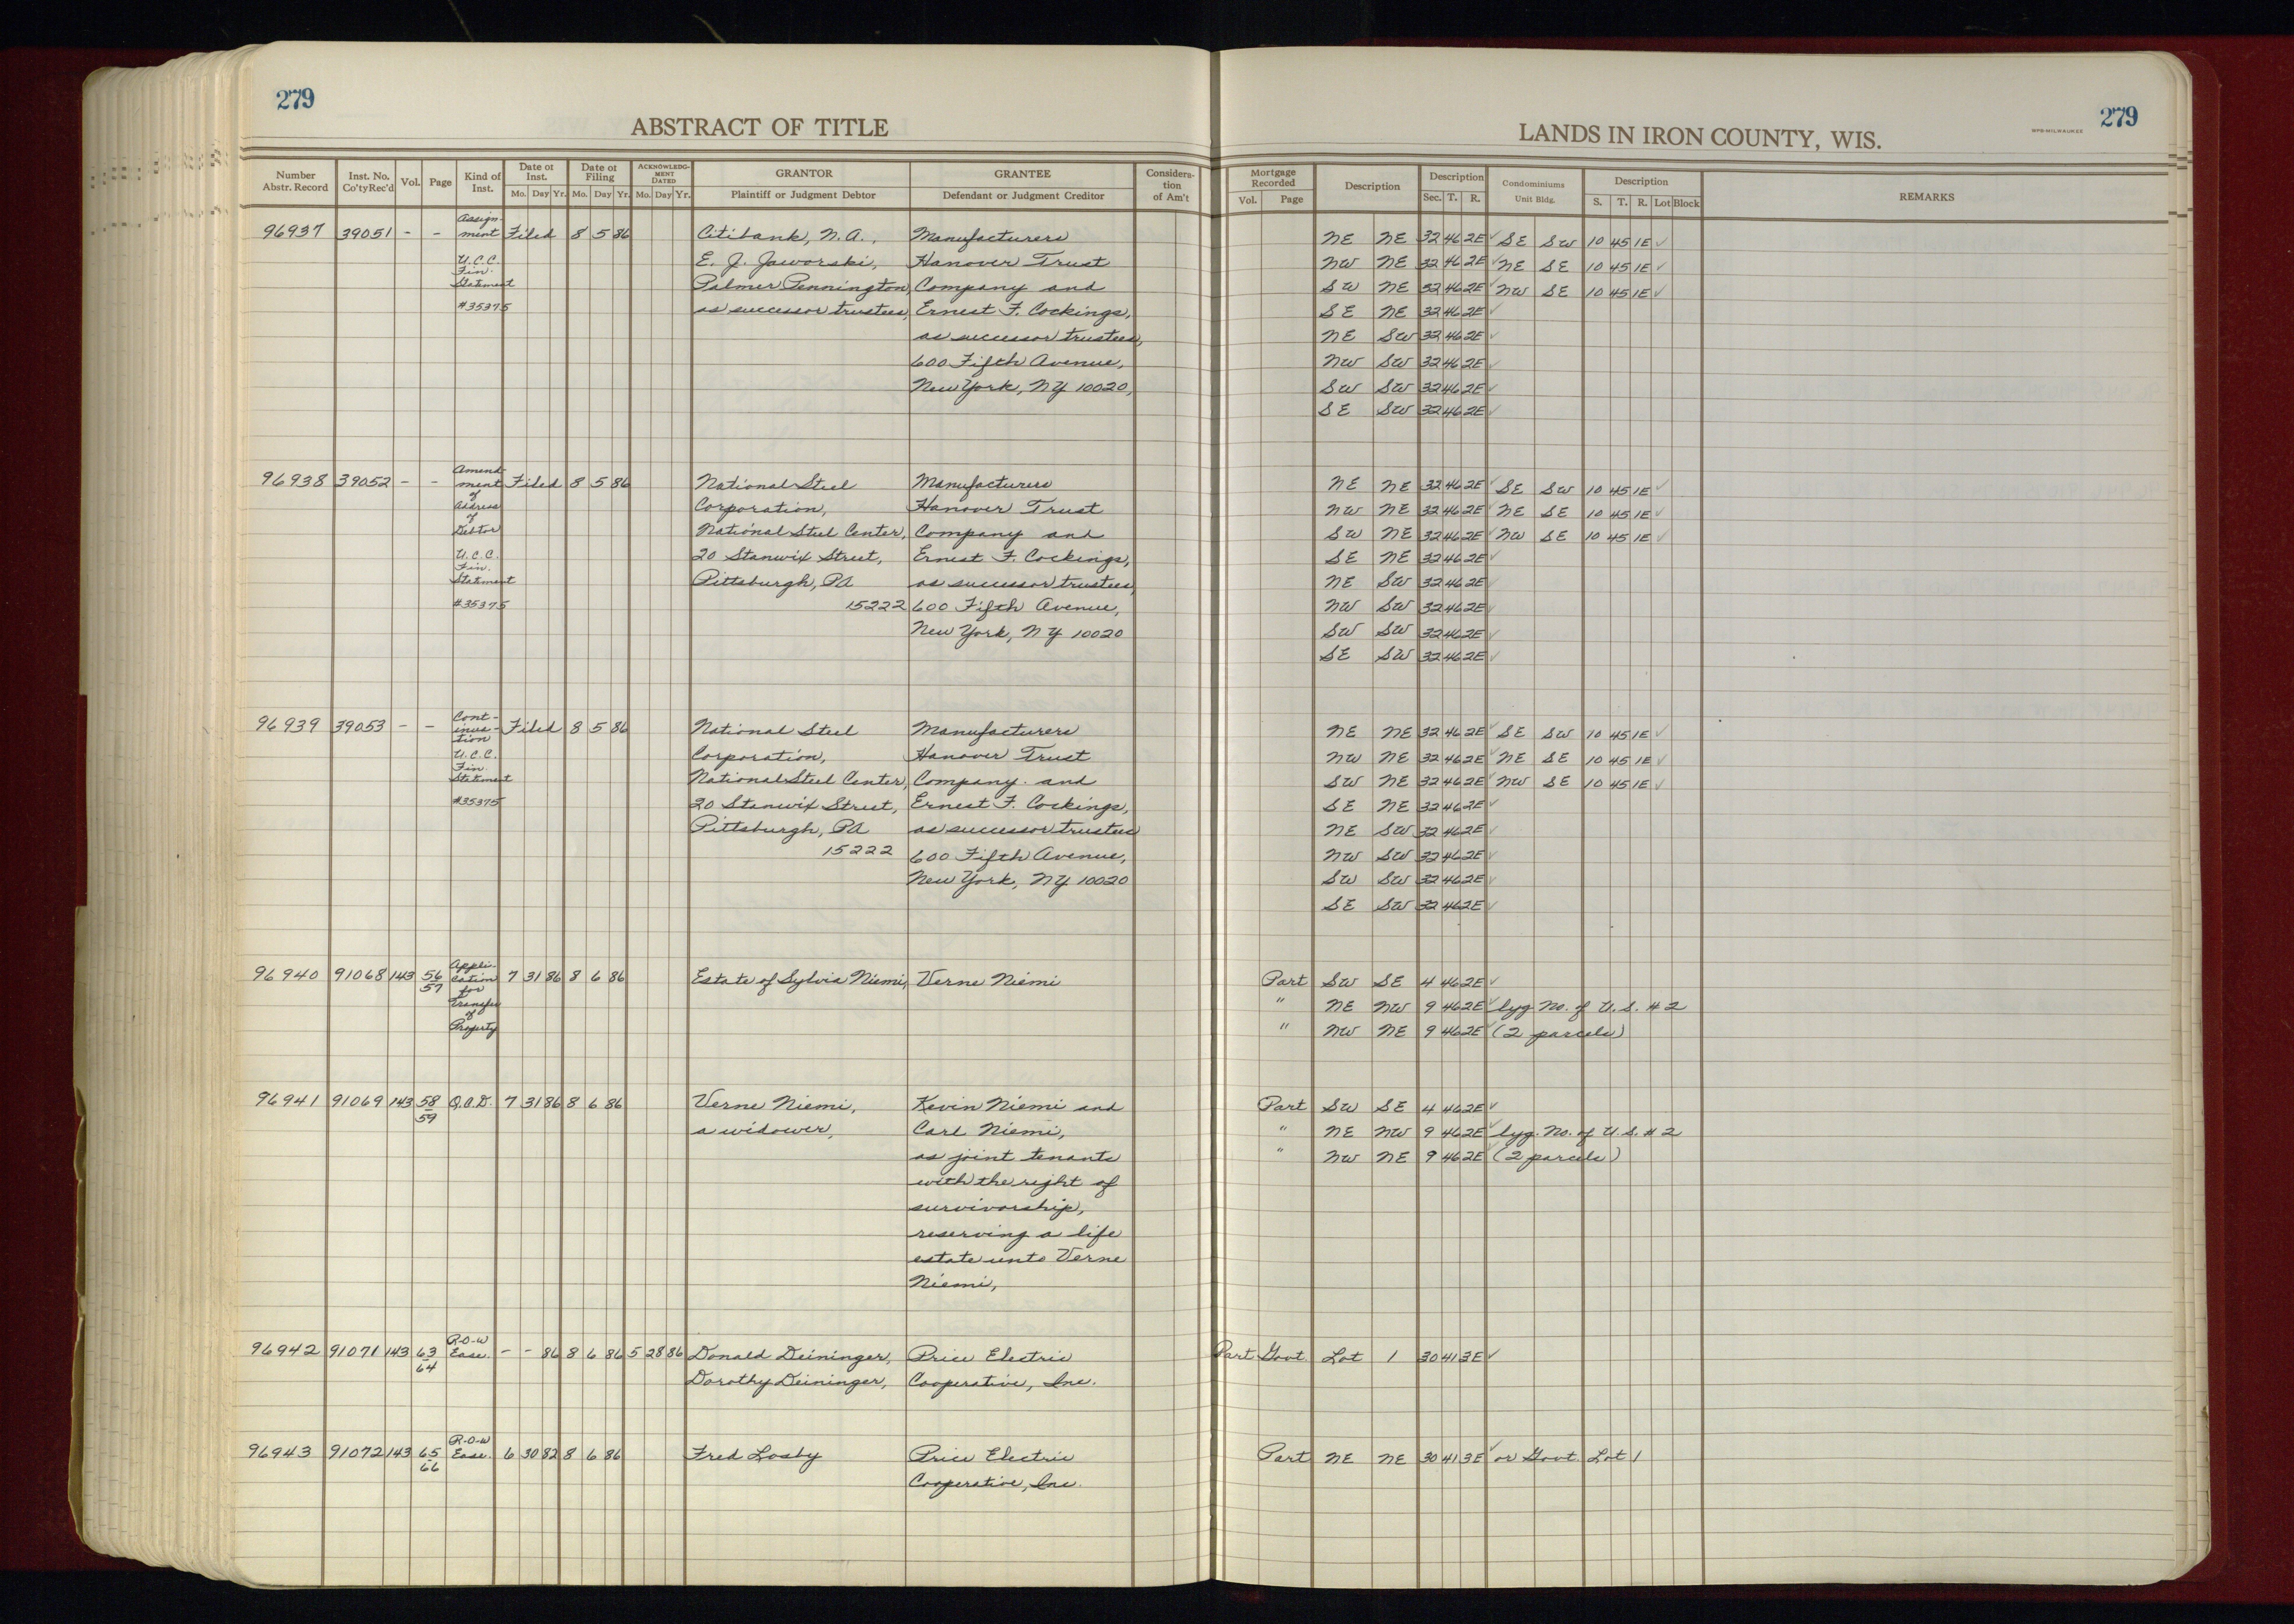 279
ABSTRACT OF TITLE
Number Abstr. Record | Inst. No. Co'ty Rec'd | Vol. | Page | Kind of Inst. | Date of Inst. Mo. Day Yr. | Date of Filing Mo. Day Yr. | ACKNOWLEDGMENT DATED Mo. Day Yr. | GRANTOR Plaintiff or Judgment Debtor | GRANTEE Defendant or Judgment Creditor | Consideration of Am't
96937 39051 - - Assign- ment Filed 8 5 86 Citibank, N.A., Manufacturers
U.C.C. E. J. Jaworski, Hanover Trust
Fin. Statment Palmer Pennington, Company and
#35375 as successor trustees, Ernest F. Cockings,
as successor trustees,
600 Fifth Avenue,
New York, NY 10020,
96938 39052 - - Amend- ment Filed 8 5 86 National Steel Manufacturers
of Address Corporation, Hanover Trust
of Debtor National Steel Center, Company and
U.C.C. 20 Stanwix Street, Ernest F. Cockings,
Fin. Statment Pittsburgh, PA as successor trustees,
#35375 15222 600 Fifth Avenue,
New York, NY 10020
96939 39053 - - Cont- inua- tion Filed 8 5 86 National Steel Manufacturers
U.C.C. Corporation, Hanover Trust
Fin. Statment National Steel Center, Company and
#35375 20 Stanwix Street, Ernest F. Cockings,
Pittsburgh, PA as successor trustees
15222 600 Fifth Avenue,
New York, NY 10020
96940 91068 143 56 57 Appli- cation for Transfer of Property 7 31 86 8 6 86 Estate of Sylvia Niemi, Verne Niemi
96941 91069 143 58 59 Q.C.D. 7 31 86 8 6 86 Verne Niemi, Kevin Niemi and
a widower, Carl Niemi,
as joint tenants
with the right of
survivorship,
reserving a life
estate unto Verne
Niemi,
96942 91071 143 63 64 R-O-W Ease. - - 86 8 6 86 5 28 86 Donald Deininger, Price Electric
Dorothy Deininger, Cooperative, Inc.
96943 91072 143 65 66 R-O-W Ease. 6 30 82 8 6 86 Fred Losby Price Electric
Cooperative, Inc.
279
LANDS IN IRON COUNTY, WIS.
MPB-MILWAUKEE
Mortgage Recorded Vol. Page | Description | Description Sec. T. R. | Condominiums Unit Bldg. | Description S. T. R. Lot Block | REMARKS
NE NE 32 46 2E ✓ SE SW 10 45 1E ✓
NW NE 32 46 2E ✓ NE SE 10 45 1E ✓
SW NE 32 46 2E ✓ NW SE 10 45 1E ✓
SE NE 32 46 2E ✓
NE SW 32 46 2E ✓
NW SW 32 46 2E ✓
SW SW 32 46 2E ✓
SE SW 32 46 2E ✓
NE NE 32 46 2E ✓ SE SW 10 45 1E ✓
NW NE 32 46 2E ✓ NE SE 10 45 1E ✓
SW NE 32 46 2E ✓ NW SE 10 45 1E ✓
SE NE 32 46 2E ✓
NE SW 32 46 2E ✓
NW SW 32 46 2E ✓
SW SW 32 46 2E ✓
SE SW 32 46 2E ✓
NE NE 32 46 2E ✓ SE SW 10 45 1E ✓
NW NE 32 46 2E ✓ NE SE 10 45 1E ✓
SW NE 32 46 2E ✓ NW SE 10 45 1E ✓
SE NE 32 46 2E ✓
NE SW 32 46 2E ✓
NW SW 32 46 2E ✓
SW SW 32 46 2E ✓
SE SW 32 46 2E ✓
Part SW SE 4 46 2E ✓
" NE NW 9 46 2E ✓ lyg No. of U.S. # 2
" NW NE 9 46 2E ✓ (2 parcels)
Part SW SE 4 46 2E ✓
" NE NW 9 46 2E ✓ lyg. No. of U.S. # 2
" NW NE 9 46 2E ✓ (2 parcels)
Part Govt. Lot 1 30 41 3E ✓
Part NE NE 30 41 3E ✓ or Govt. Lot 1